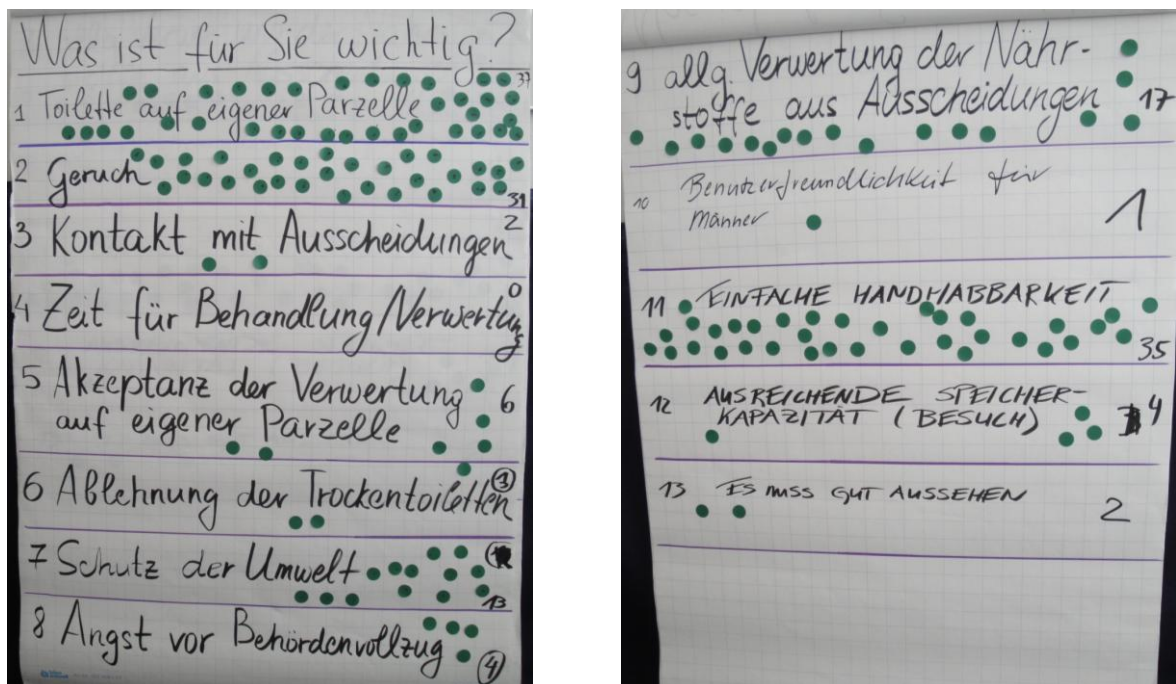 Was ist für Sie wichtig?
37
1 Toilette auf eigener Parzelle
2 Geruch
31
3 Kontakt mit Ausscheidungen 2
4 Zeit für Behandlung/Verwertung 0
5 Akzeptanz der Verwertung 6
auf eigener Parzelle
6 Ablehnung der Trockentoiletten 3
7 Schutz der Umwelt
13
8 Angst vor Behördenvollzug 4
9 allg. Verwertung der Nähr-
stoffe aus Ausscheidungen 17
10 Benutzerfreundlichkeit für
Männer 1
11 EINFACHE HANDHABBARKEIT
35
12 AUSREICHENDE SPEICHER-
KAPAZITÄT (BESUCH) 4
13 ES MUSS GUT AUSSEHEN 2